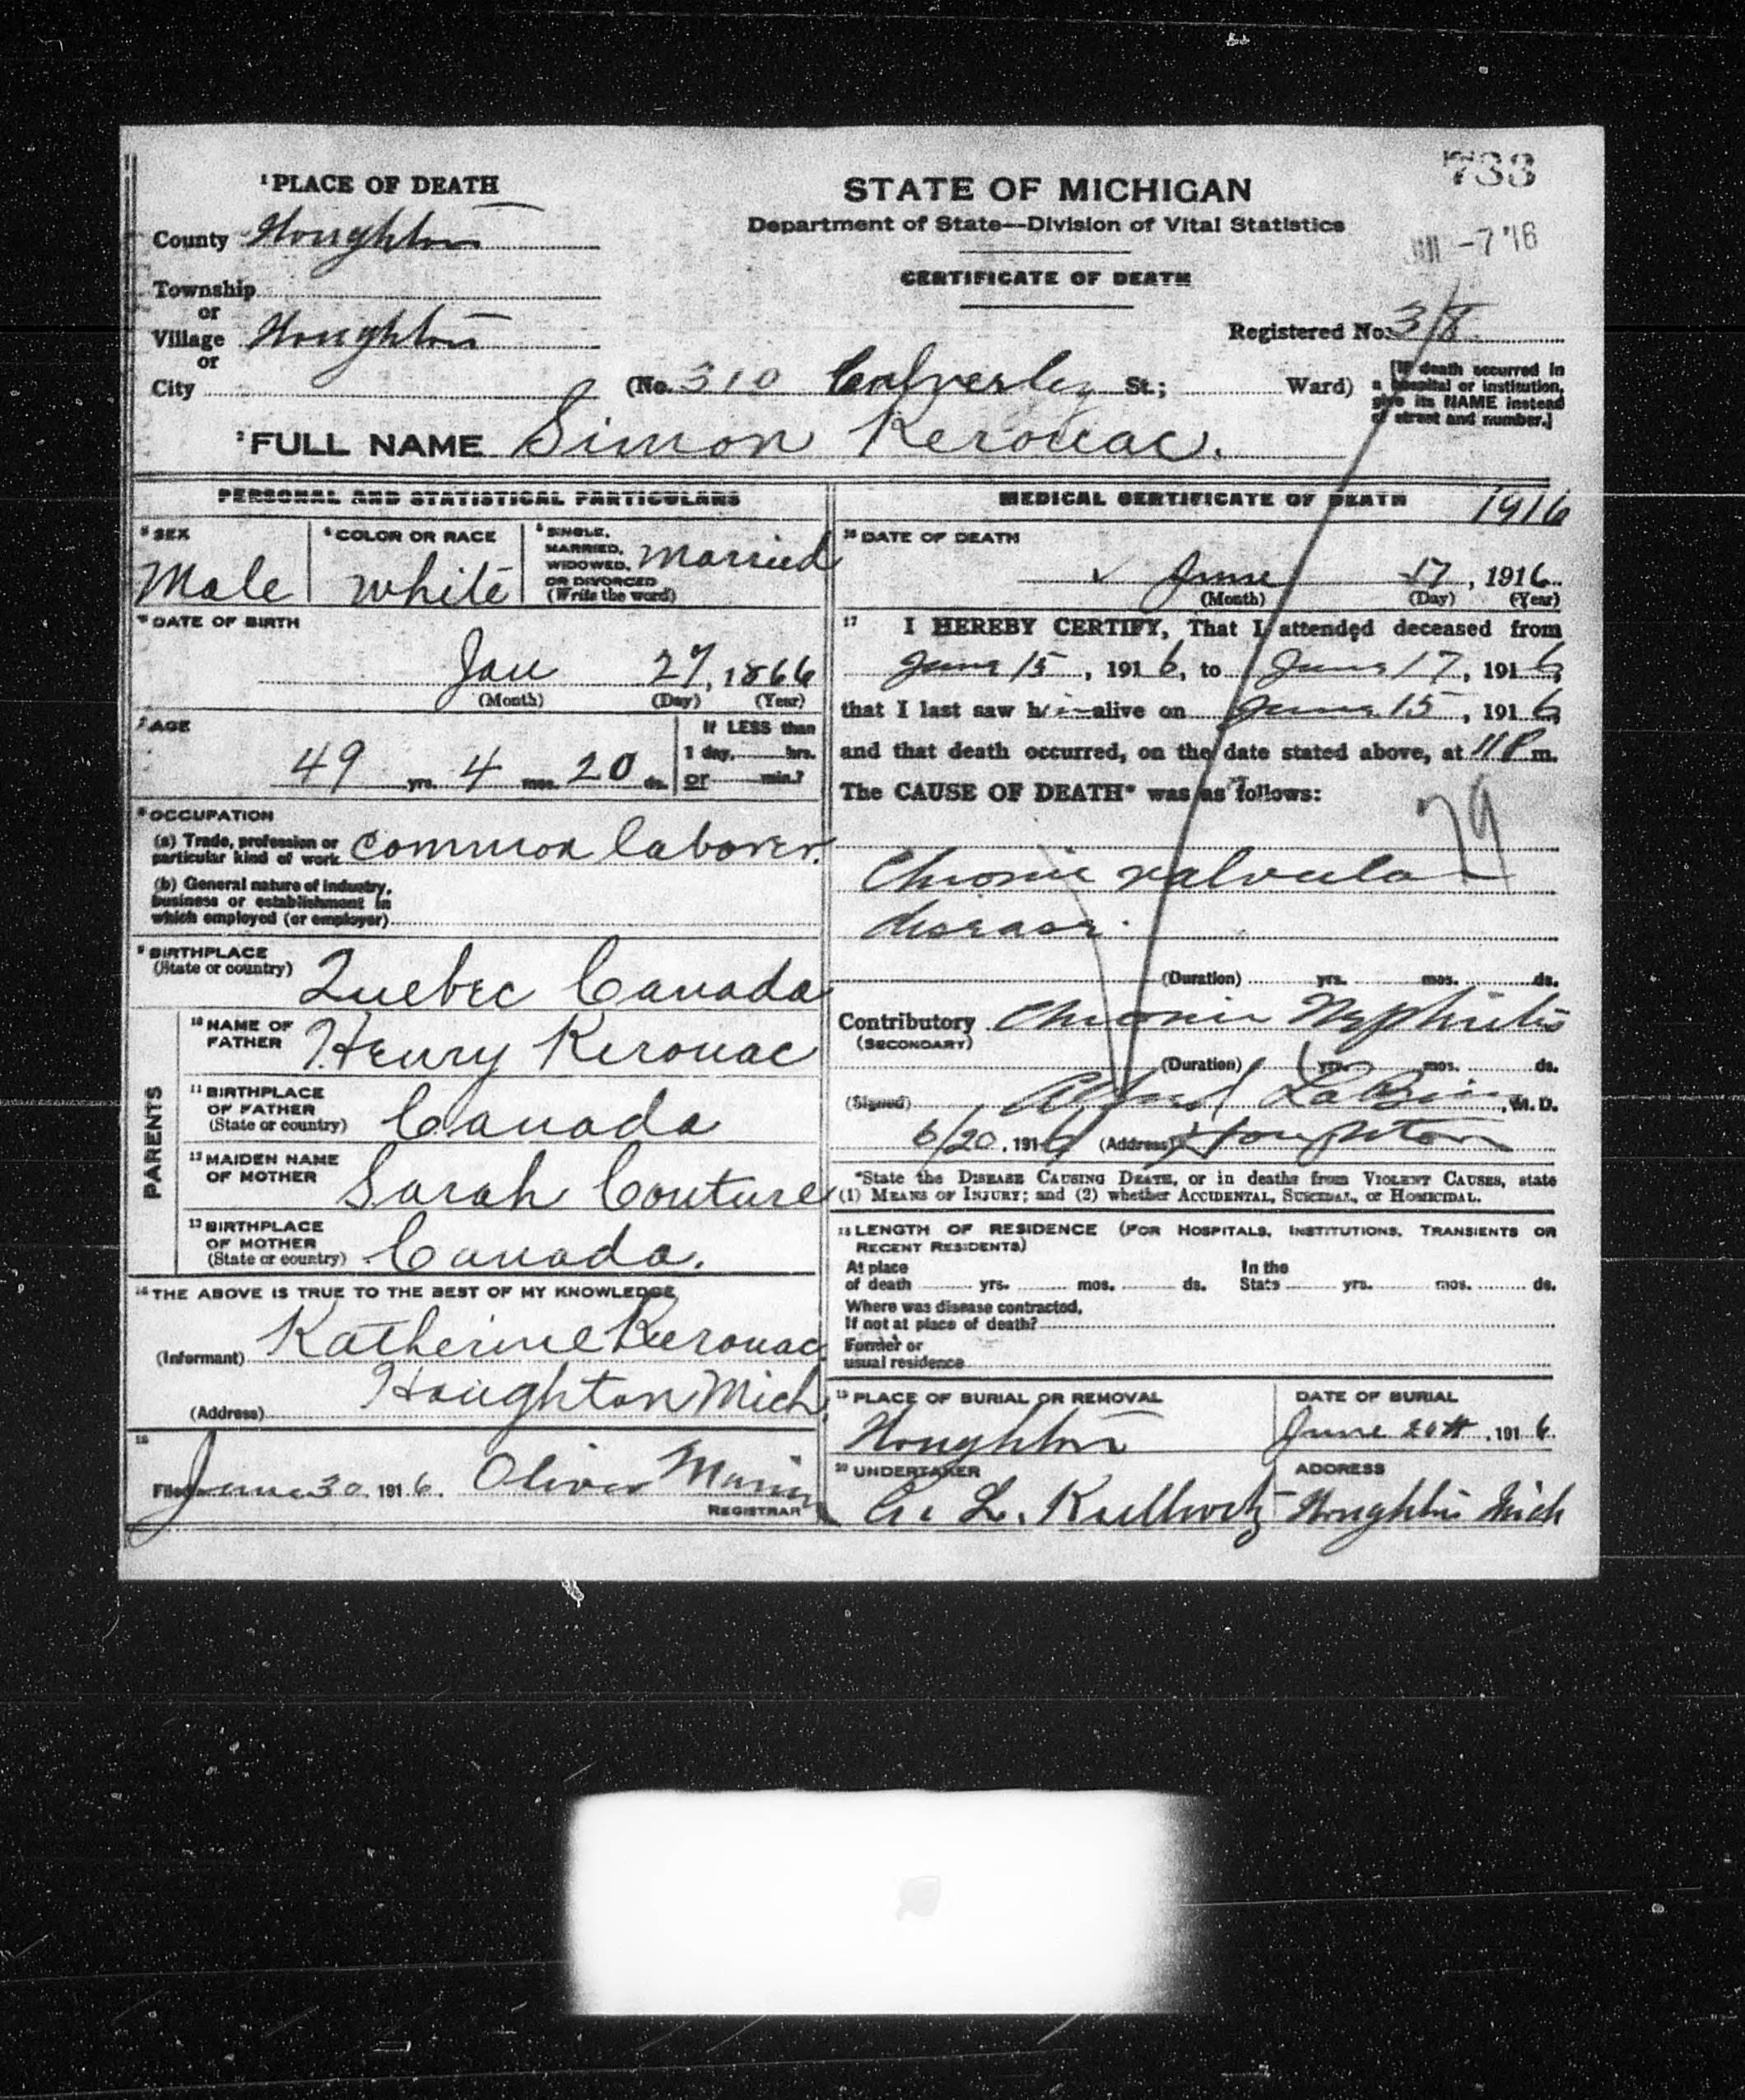 733
JUL -7 '16
¹PLACE OF DEATH
County Houghton
Township
or
Village Houghton
or
City
STATE OF MICHIGAN
Department of State—Division of Vital Statistics
CERTIFICATE OF DEATH
Registered No. 318
(No. 310 Calverley St.; Ward)
[If death occurred in
a hospital or institution,
give its NAME instead
of street and number.]
²FULL NAME Simon Kerouac.
PERSONAL AND STATISTICAL PARTICULARS
³SEX
Male
⁴COLOR OR RACE
White
⁵SINGLE,
MARRIED,
WIDOWED,
OR DIVORCED
(Write the word)
Married
⁶DATE OF BIRTH
Jan 27, 1866
(Month) (Day) (Year)
⁷AGE
49 yrs. 4 mos. 20 ds.
If LESS than
1 day, hrs.
or min.?
⁸OCCUPATION
(a) Trade, profession or
particular kind of work
Common laborer.
(b) General nature of industry,
business or establishment in
which employed (or employer)
⁹BIRTHPLACE
(State or country)
Quebec Canada
PARENTS
¹⁰NAME OF
FATHER
Henry Kerouac
¹¹BIRTHPLACE
OF FATHER
(State or country)
Canada
¹²MAIDEN NAME
OF MOTHER
Sarah Couture
¹³BIRTHPLACE
OF MOTHER
(State or country)
Canada.
¹⁴THE ABOVE IS TRUE TO THE BEST OF MY KNOWLEDGE
(Informant) Katherine Kerouac
(Address) Houghton Mich.
¹⁵
Filed June 30 1916. Oliver
REGISTRAR
MEDICAL CERTIFICATE OF DEATH
1916
¹⁶DATE OF DEATH
✓ June 17, 1916
(Month) (Day) (Year)
¹⁷ I HEREBY CERTIFY, That I attended deceased from
June 15, 1916, to June 17, 1916,
that I last saw him alive on June 15, 1916,
and that death occurred, on the date stated above, at 11 P m.
The CAUSE OF DEATH* was as follows:
79
Chronic valvular
disease.
(Duration) yrs. mos. ds.
Contributory Chronic Nephritis
(SECONDARY)
(Duration) yrs. mos. ds.
(Signed) Alfred LaBine, M. D.
6/20, 1916 (Address) Houghton
*State the DISEASE CAUSING DEATH, or in deaths from VIOLENT CAUSES, state
(1) MEANS OF INJURY; and (2) whether ACCIDENTAL, SUICIDAL, or HOMICIDAL.
¹⁸LENGTH OF RESIDENCE (FOR HOSPITALS, INSTITUTIONS, TRANSIENTS OR
RECENT RESIDENTS)
At place
of death yrs. mos. ds.
In the
State yrs. mos. ds.
Where was disease contracted,
If not at place of death?
Former or
usual residence
¹⁹PLACE OF BURIAL OR REMOVAL
Houghton
DATE OF BURIAL
June 20th, 1916.
²⁰UNDERTAKER
L.
ADDRESS
Houghton Mich